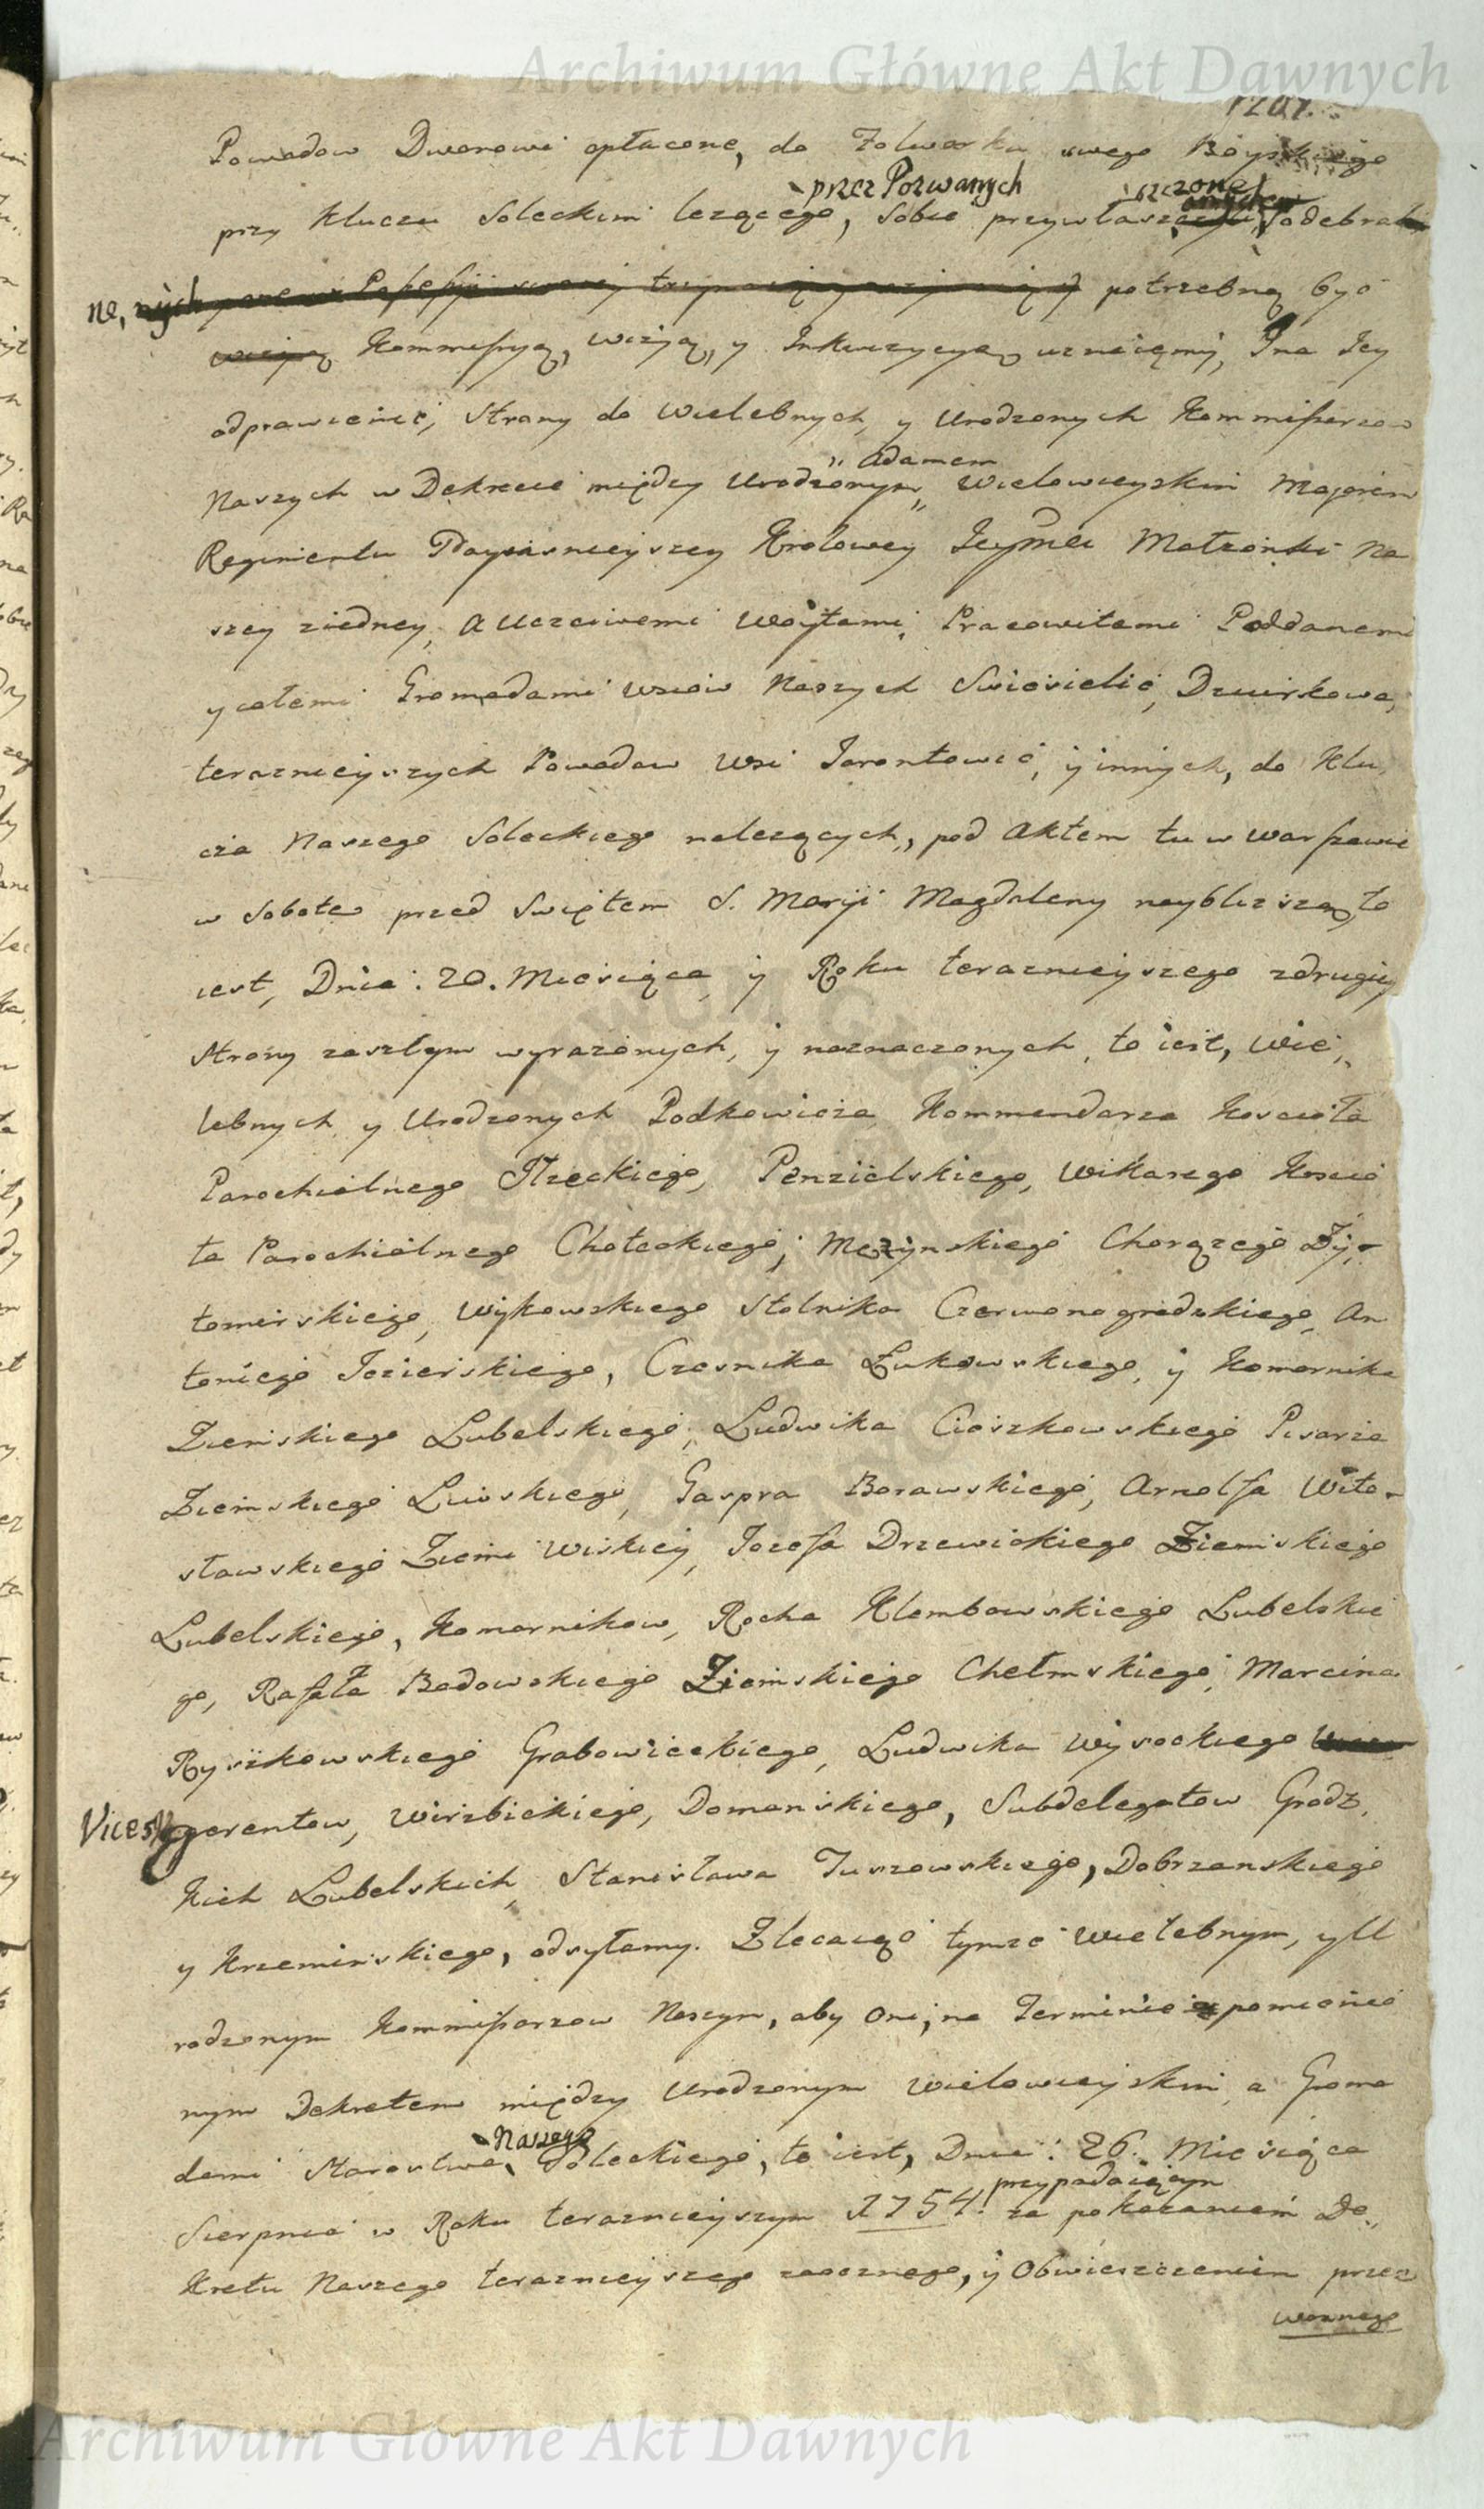 Archiwum Główne Akt Dawnych
1201.
Powodow Dworowi opłacone, do Folwarku swego Boyskiego
przez Pozwanych szczone
przy Kluczu Soleckim lezącego, Sobie przywłaszczyli, odebrali
ne, potrzebną być
Kommissyą, wizyą, y Inkwizycyą uznaięmy, Ina Iey
odprawienie, Strony do Wielebnych, y Urodzonych Kommissarzow
Adamem
Naszych w Dekrecie między Urodzonym, Wielowieyskim Majorem
Regimentu Nayiasnieyszey Krolowey Ieymci Małzonki Na
szey ziedney, a Uczciwemi Woytami, Pracowitemi Poddanemi
y całemi Gromadami wsiow Naszych Swiesielic, Dziurkowa,
teraznieyszych Powodow wsi Jarontowic, y innych, do Klu
cza Naszego Soleckiego nalezących, pod Aktem tu w Warszawie
w Sobotę przed Swiętem S. Maryi Magdaleny naybliszszą, to
iest, Dnia: 20. Miesiąca y Roku teraznieyszego zdrugiey
Strony zaszłym wyrazonych, y naznaczonych, to iest, Wie
lebnych y Urodzonych Podkowicza Kommendarza Koscioła
Parochialnego Iłzeckiego, Penzielskiego, Wikarego Koscio
ła Parochialnego Choteckiego; Mezynskiego Chorązego Zy
tomirskiego, Wykowskiego Stolnika Czerwonogrodzkiego, An
toniego Jezierskiego, Czesnika Łukowskiego, y Komornika
Ziemskiego Lubelskiego; Ludwika Cioszkowskiego Pisarza
Ziemskiego Liwskiego, Gaspra Borawskiego, Arnolfa Wito
sławskiego Ziemi Wiskiey, Jozefa Drzewickiego Ziemskiego
Lubelskiego, Komornikow, Rocha Klembowskiego Lubelskie
go, Rafała Badowskiego Ziemskiego Chełmskiego, Marcina
Ryszkowskiego Grabowieckiego, Ludwika Wysockiego
Vicesgerentow, Wirzbickiego, Domanskiego, Subdelegatow Grodz
kich Lubelskich, Stanisława Tuszowskiego, Dobrzanskiego
y Krzeminskiego, odsyłamy. Zlecaiąc tymze Wielebnym, y U
rodzonym Kommissarzow Naszym, aby oni, na Terminie pomienio
nym Dekretem między Urodzonym Wielowieyskim a Groma
Naszego
dami Starostwa Soleckiego, to iest, Dnia: 26. Miesiąca
przypadaiącym
Sierpnia w Roku teraznieyszym 1754. za pokazaniem De
kretu Naszego teraznieyszego zaocznego, y Obwieszczeniem przez
woznego
Archiwum Główne Akt Dawnych